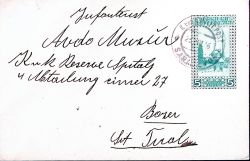 Infanterist
Avdo Muzlić
K.u.k Reserve Spital
4 Abtailung cimer 27
Bozen
Süt Tirol
5 5